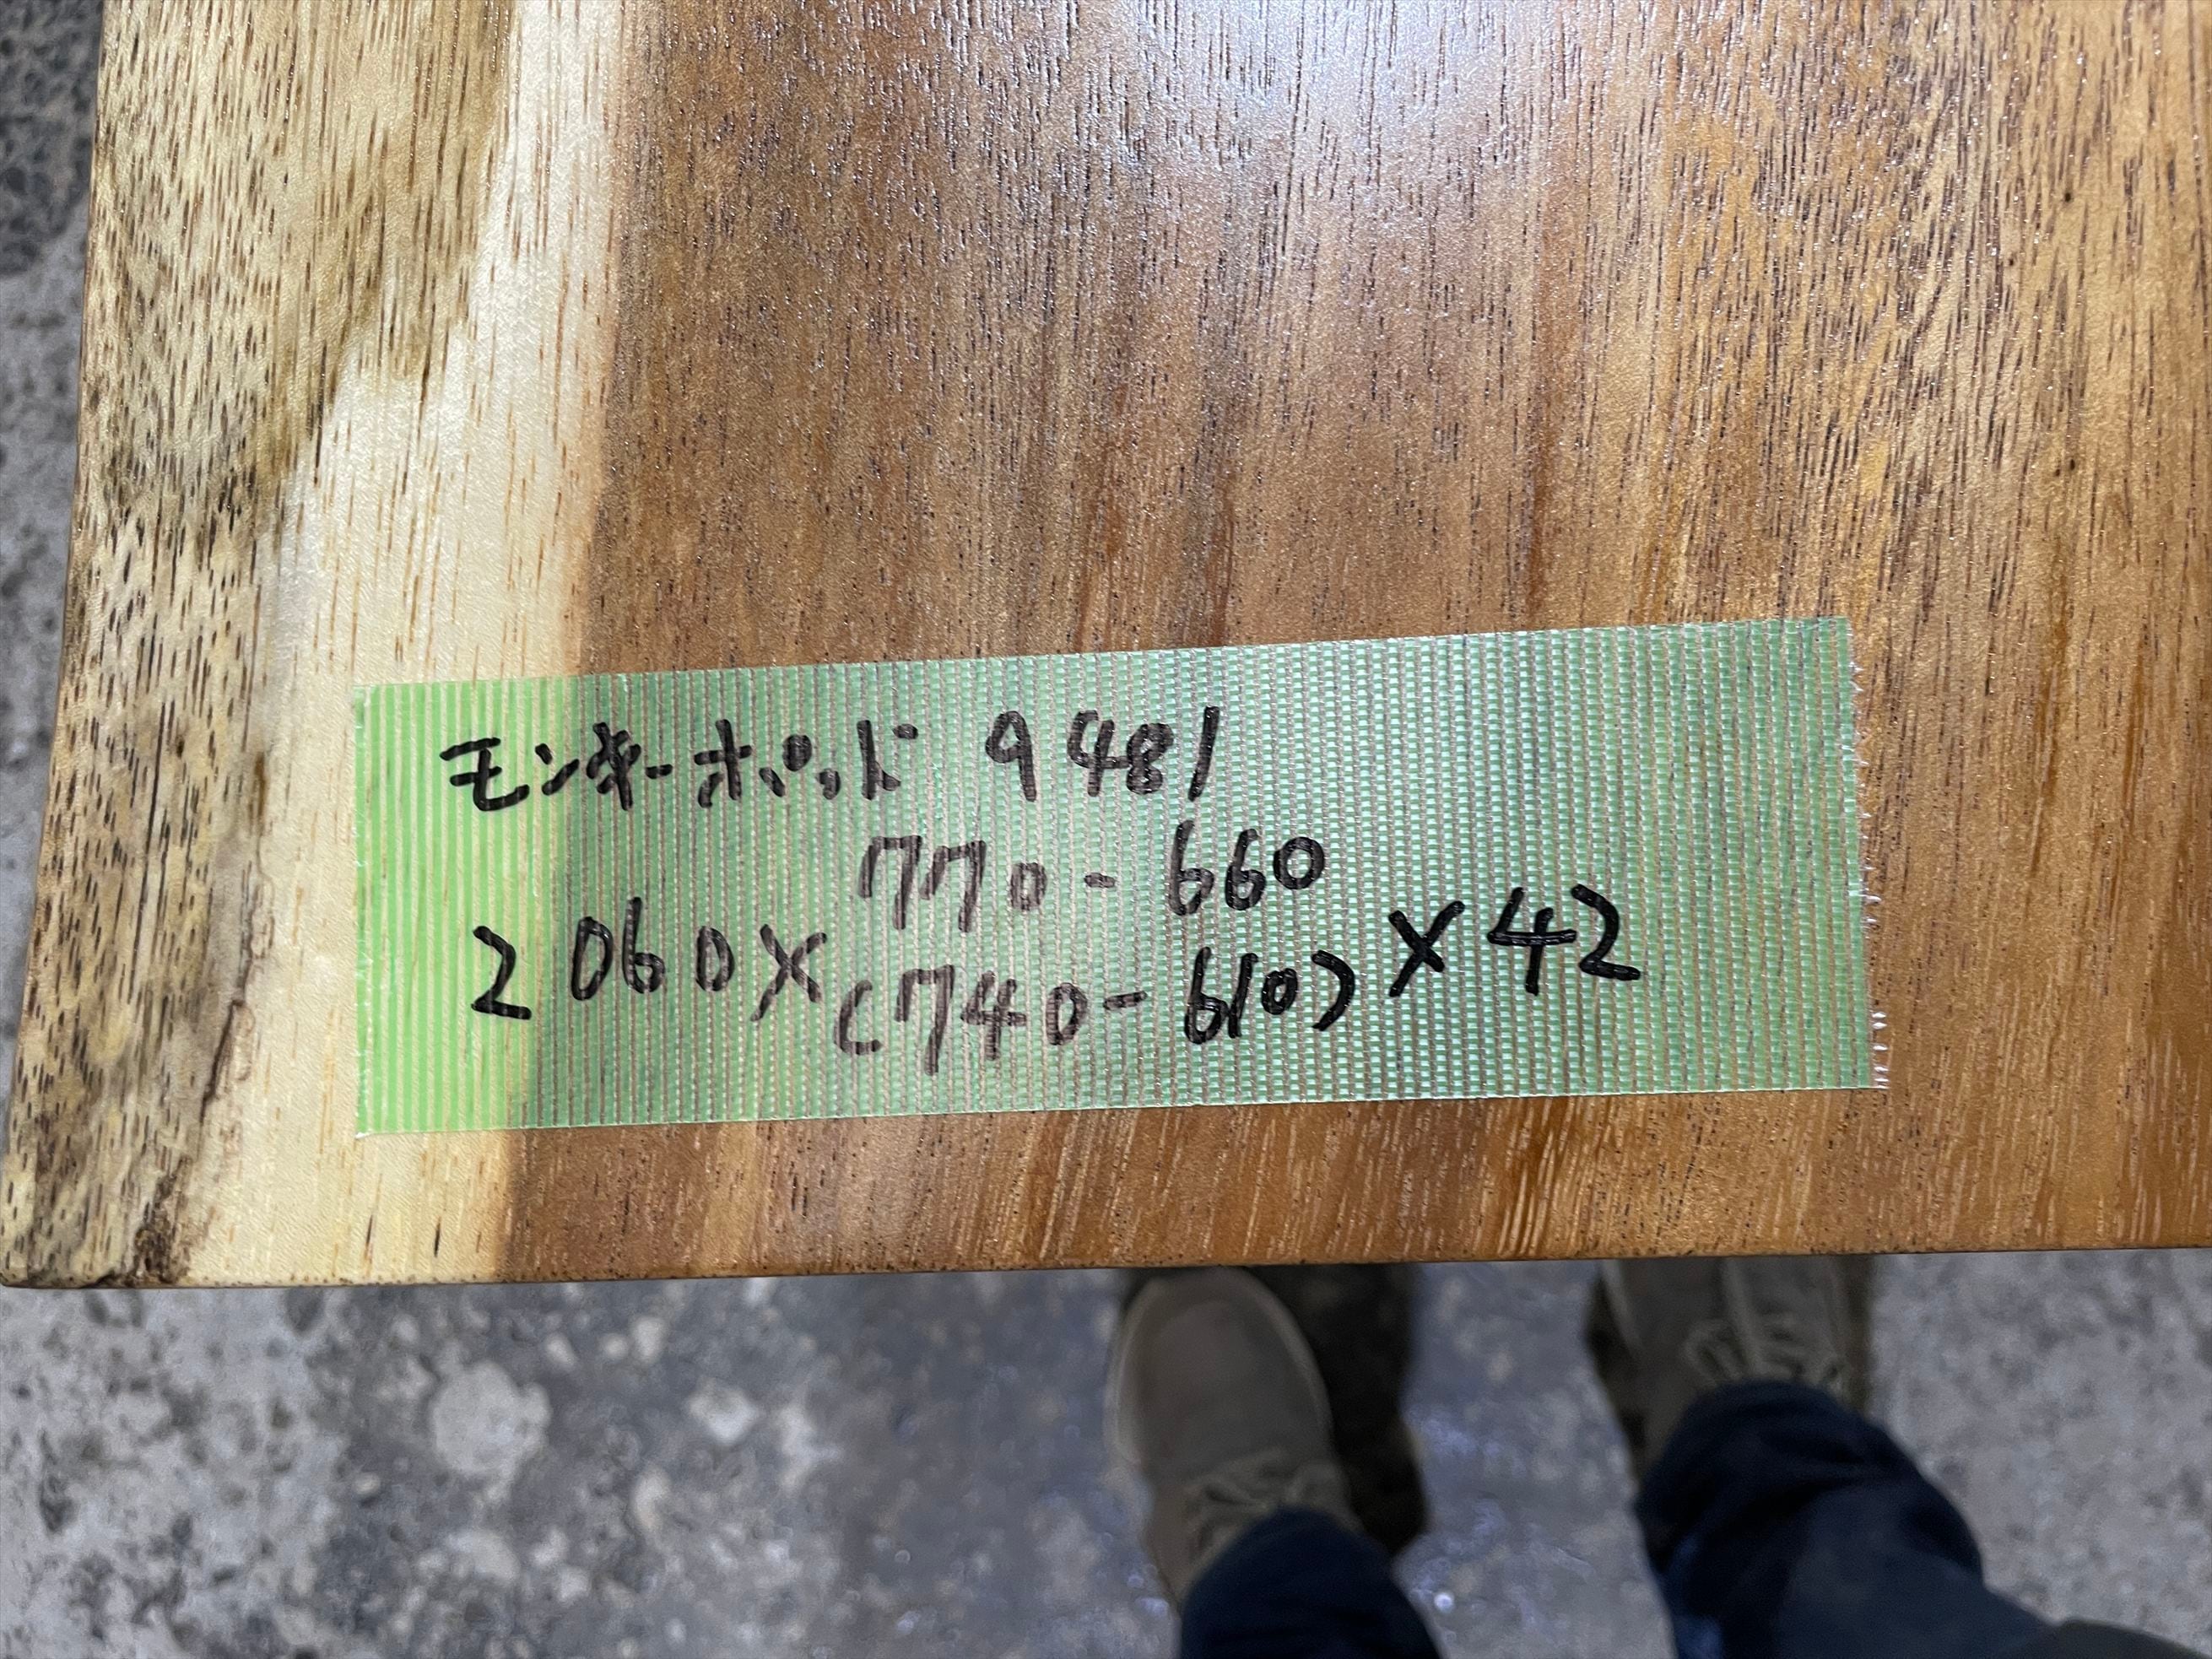 モンキーポッド 9481
770-660
2060×(740-610)×42